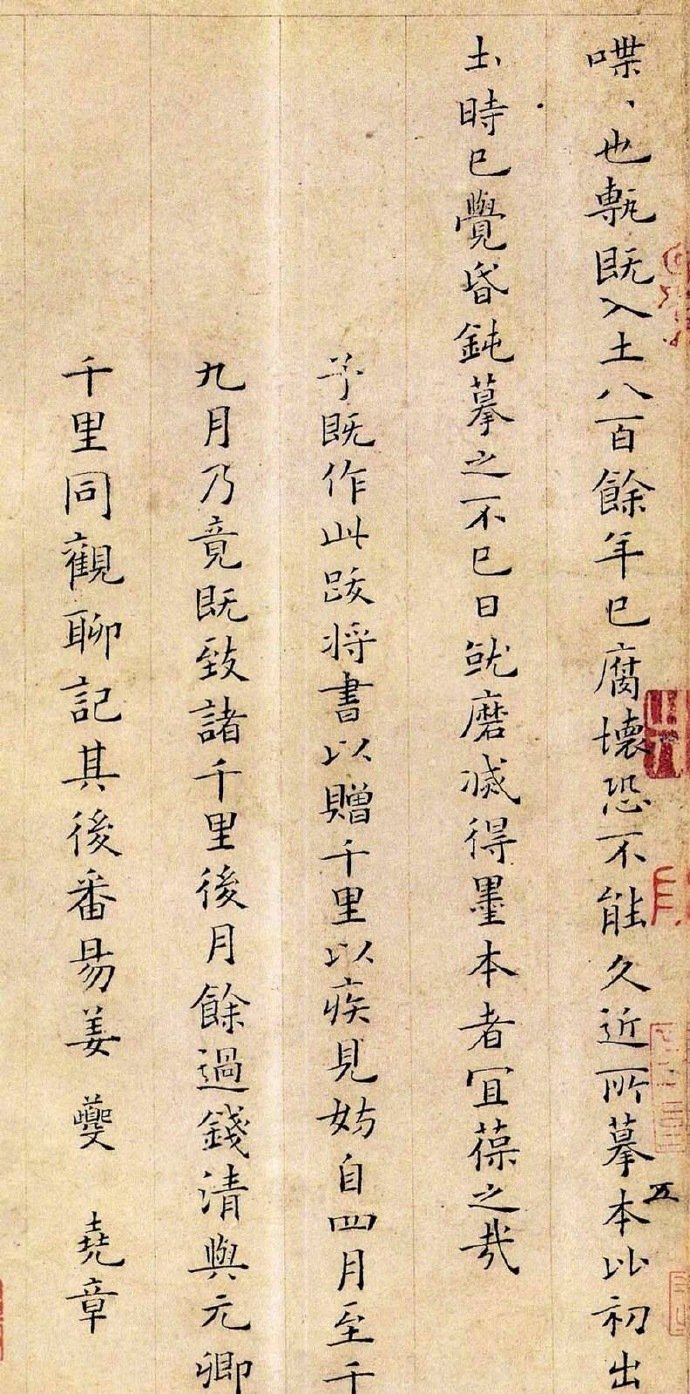 喋、也甎既入土八百餘年已腐壞恐不能久近所摹本比初出
土時已覺昏鈍摹之不已日就磨滅得墨本者宜葆之哉
予既作此跋将書以贈千里以疾見妨自四月至十
九月乃竟既致諸千里後月餘過錢清與元卿
千里同觀聊記其後番昜姜夔 堯章
五